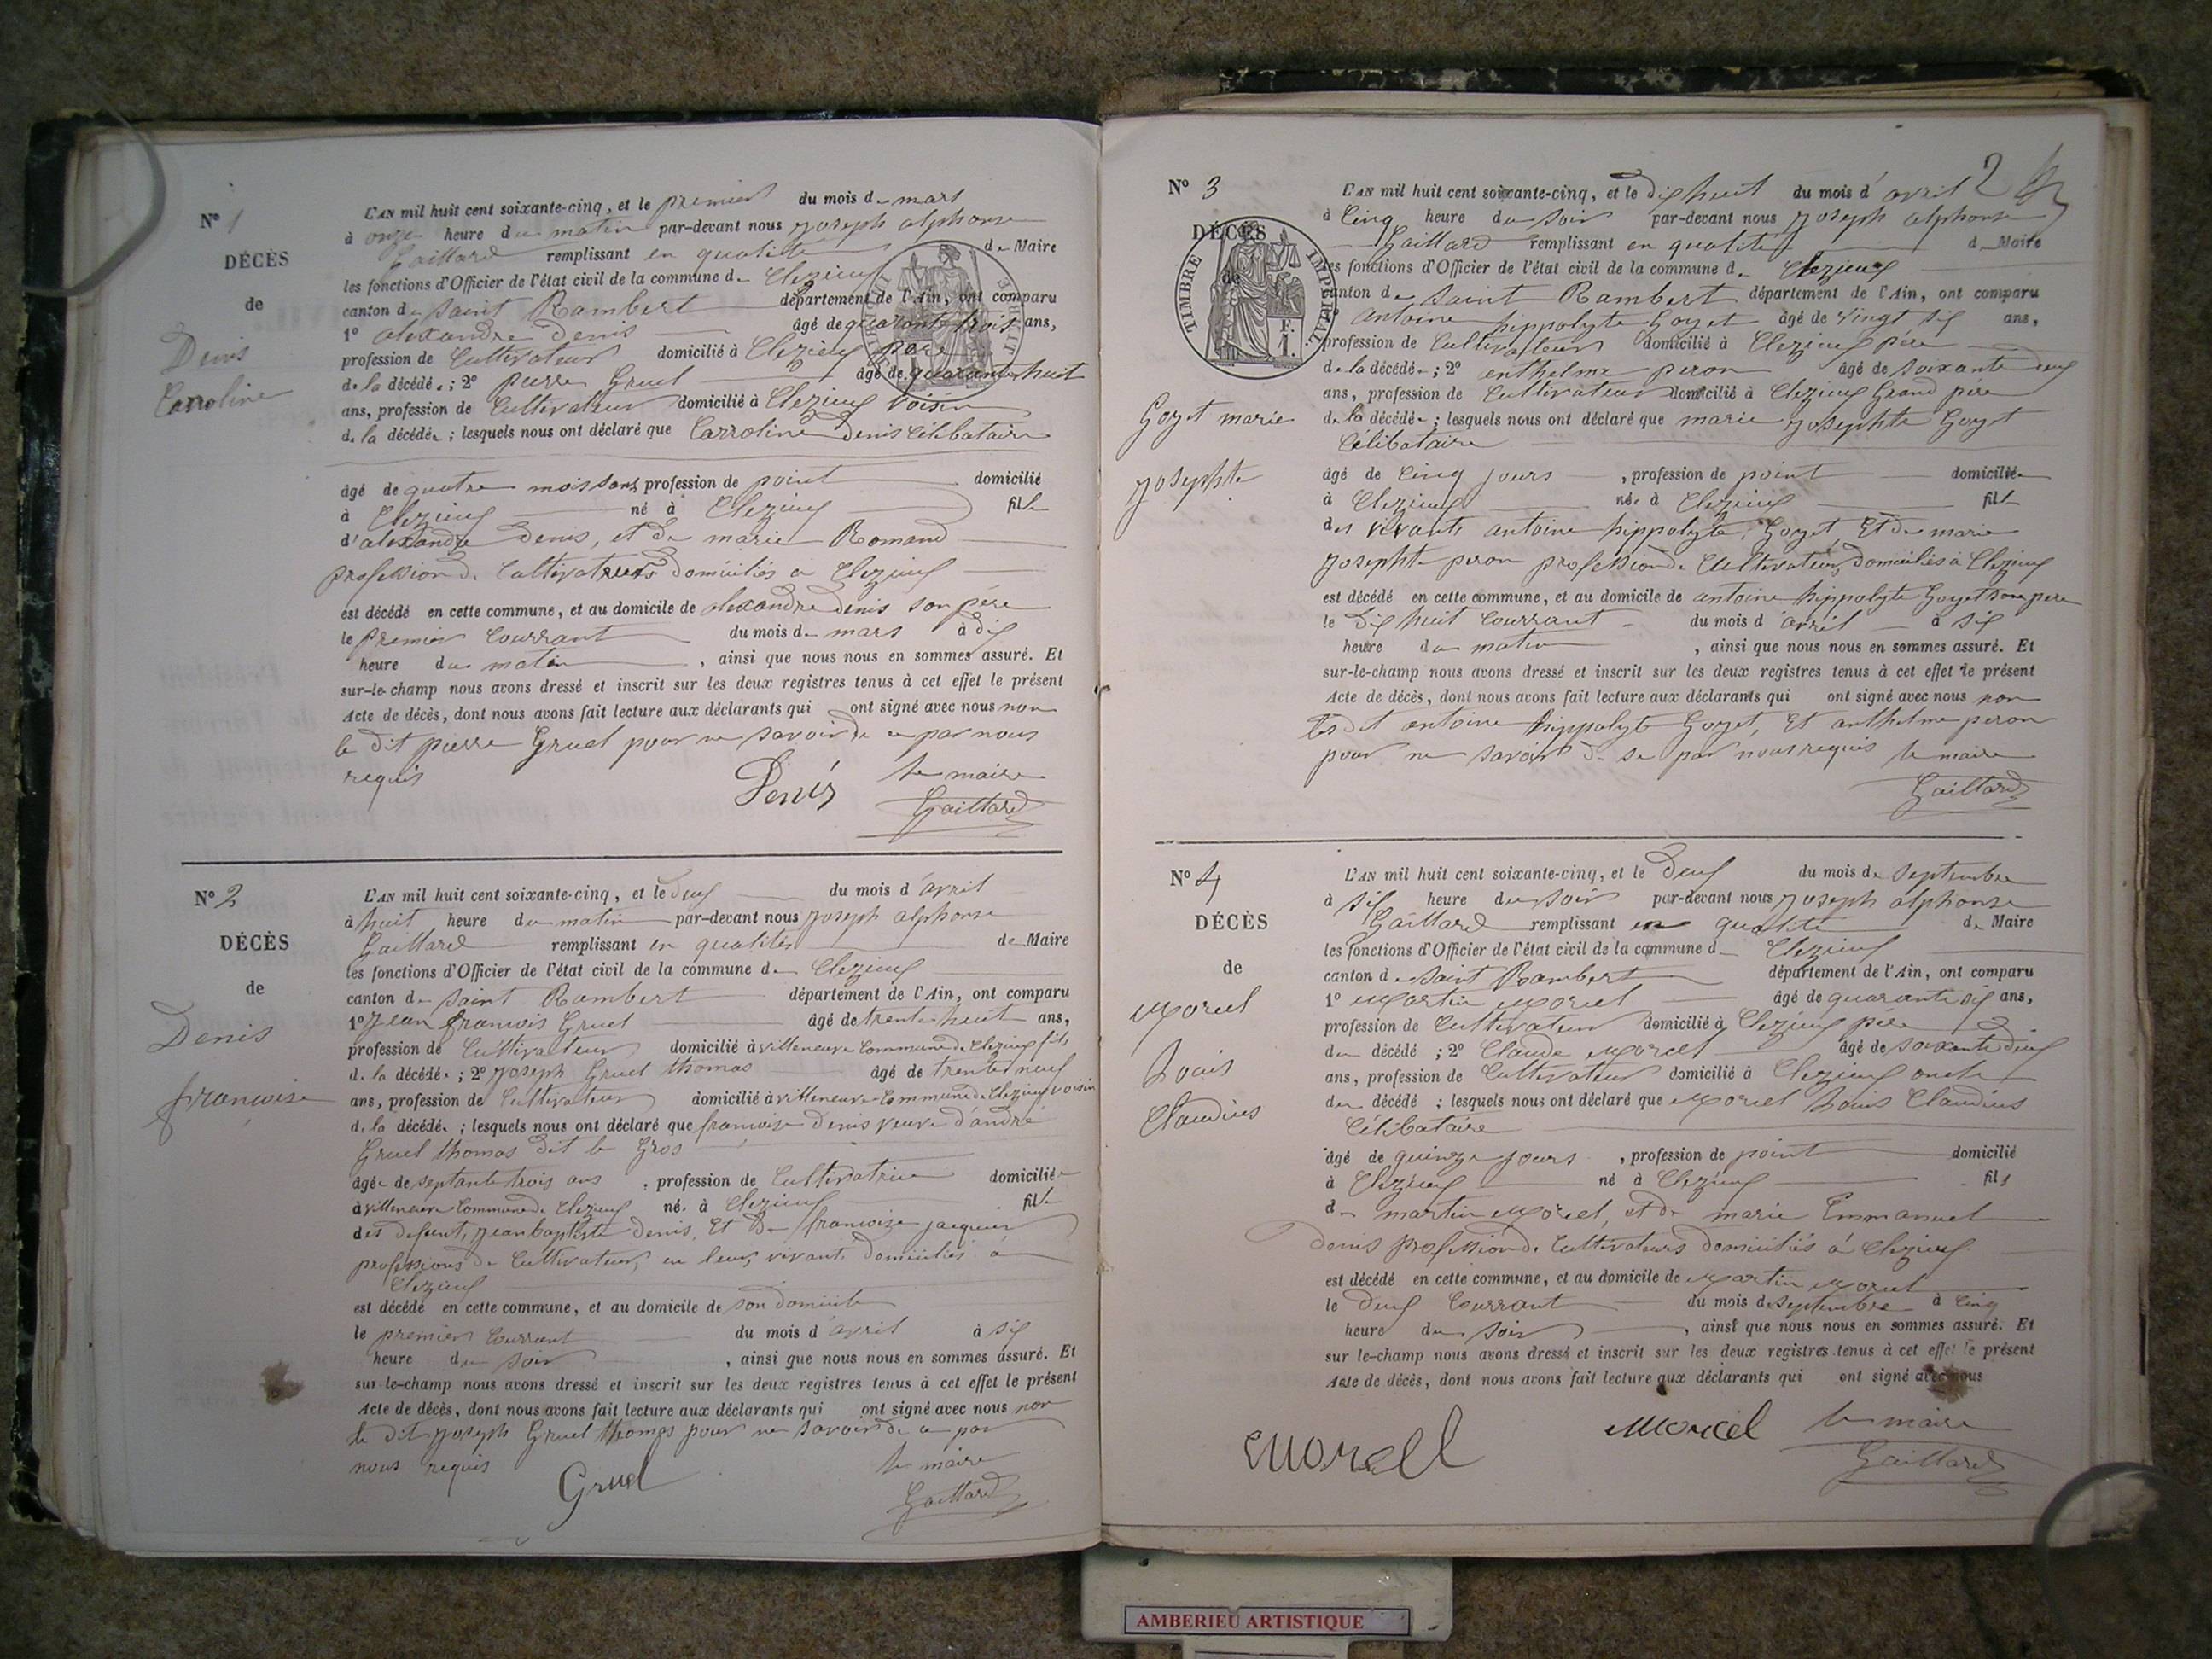 N° 1
DÉCÈS
de
Denis
Carroline
L'AN mil huit cent soixante-cinq, et le premier du mois de mars
à onze heure du matin par-devant nous joseph alphonse
Gaillard remplissant en qualité de Maire
les fonctions d'Officier de l'état civil de la commune de Clezieux
canton de saint Rambert département de l'Ain, ont comparu
1° alexandre Denis âgé de quarante trois ans,
profession de Cultivateur domicilié à Clezieux père
de la décédée ; 2° pierre Gruel âgé de quarante huit
ans, profession de Cultivateur domicilié à Clezieux voisin
de la décédée ; lesquels nous ont déclaré que Carroline Denis Célibataire
âgé de quatre mois sans profession de point domicilié
à Clezieux né à Clezieux fille
d'alexandre Denis, et de marie Romand
profession de Cultivateurs domiciliés a Clezieux
est décédé en cette commune, et au domicile de alexandre denis son père
le premier Courrant du mois de mars à dix
heure du matin , ainsi que nous nous en sommes assuré. Et
sur-le-champ nous avons dressé et inscrit sur les deux registres tenus à cet effet le présent
Acte de décès, dont nous avons fait lecture aux déclarants qui ont signé avec nous non
le dit pierre Gruel pour ne savoir de ce par nous
requis Denis le maire
Gaillard
N° 2
DÉCÈS
de
Denis
francoise
L'AN mil huit cent soixante-cinq, et le deux du mois d'avril
à huit heure du matin par-devant nous joseph alphonse
Gaillard remplissant en qualité de Maire
les fonctions d'Officier de l'état civil de la commune de Clezieux
canton de saint Rambert département de l'Ain, ont comparu
1° jean francois Gruel âgé de trente huit ans,
profession de Cultivateur domicilié à villeneuve Commune de Clezieux fils
de la décédée ; 2° joseph Gruel thomas âgé de trente neuf
ans, profession de Cultivateur domicilié à villeneuve Commune de Clezieux voisin
de la décédée ; lesquels nous ont déclaré que francoise Denis veuve d'andré
Gruel thomas dit le Gros
âgée de septante trois ans , profession de Cultivatrice domiciliée
à villeneuve Commune de Clezieux née à Clezieux fille
des defunt, jean baptiste denis, Et De francoise jacquier
professions de Cultivateur, en leur vivant domiciliés à
Clezieux
est décédé en cette commune, et au domicile de son domicile
le premier Courrant du mois d'avril à six
heure du soir , ainsi que nous nous en sommes assuré. Et
sur-le-champ nous avons dressé et inscrit sur les deux registres tenus à cet effet le présent
Acte de décès, dont nous avons fait lecture aux déclarants qui ont signé avec nous non
le dit joseph Gruel thomas pour ne savoir de ce par
nous requis Gruel le maire
Gaillard
2
N° 3
DÉCÈS
de
TIMBRE IMPERIAL
Goyet marie
josephte
L'AN mil huit cent soixante-cinq, et le dix huit du mois d'avril
à Cinq heure du soir par-devant nous joseph alphonse
Gaillard remplissant en qualité de Maire
les fonctions d'Officier de l'état civil de la commune de Clezieux
canton de saint Rambert département de l'Ain, ont comparu
antoine hippolyte Goyet âgé de vingt six ans,
profession de Cultivateur domicilié à Clezieux père
de la décédée ; 2° enthelme peron âgé de soixante deux
ans, profession de Cultivateur domicilié à Clezieux Grand père
de la décédée ; lesquels nous ont déclaré que marie josephte Goyet
Célibataire
âgé de Cinq jours , profession de point domiciliée
à Clezieux née à Clezieux fille
des vivants antoine hippolyte Goyet, Et de marie
josephte peron profession de Cultivateurs domiciliés à Clezieux
est décédé en cette commune, et au domicile de antoine hippolyte Goyet son pere
le dix huit Courrant du mois d'avril à six
heure du matin , ainsi que nous nous en sommes assuré. Et
sur-le-champ nous avons dressé et inscrit sur les deux registres tenus à cet effet le présent
Acte de décès, dont nous avons fait lecture aux déclarants qui ont signé avec nous non
les dit antoine hippolyte Goyet, Et anthelme peron
pour ne savoir de se par nous requis le maire
Gaillard
N° 4
DÉCÈS
de
Morel
Louis
Claudius
L'AN mil huit cent soixante-cinq, et le Deux du mois de septembre
à six heure du soir par-devant nous joseph alphonse
Gaillard remplissant en qualité de Maire
les fonctions d'Officier de l'état civil de la commune de Clezieux
canton de saint Rambert département de l'Ain, ont comparu
1° Martin Morel âgé de quarante six ans,
profession de Cultivateur domicilié à Clezieux père
du décédé ; 2° Claude Morel âgé de soixante deux
ans, profession de Cultivateur domicilié à Clezieux oncle
du décédé ; lesquels nous ont déclaré que Morel Louis Claudius
Célibataire
âgé de quinze jours , profession de point domicilié
à Clezieux né à Clezieux fils
de martin Morel, et de marie Emmanuel
denis profession de Cultivateurs domiciliés à Clezieux
est décédé en cette commune, et au domicile de Martin Morel
le Deux Courrant du mois de septembre à Cinq
heure du soir , ainsi que nous nous en sommes assuré. Et
sur le-champ nous avons dressé et inscrit sur les deux registres tenus à cet effet le présent
Acte de décès, dont nous avons fait lecture aux déclarants qui ont signé avec nous
Morell Morel le maire
Gaillard
AMBERIEU ARTISTIQUE